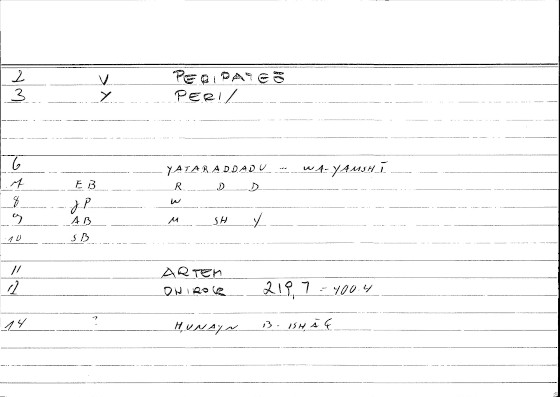 2 V PERIPATEŌ
3 Y PERI/
6 YATARADDADU - WA-YAMSHĪ
7 EB R D D
8 JP W
9 AB M SH Y
10 SB
11 ARTEM
12 ONIROCR 219,7 = 400.4
14 ? HUNAYN B - ISHĀQ